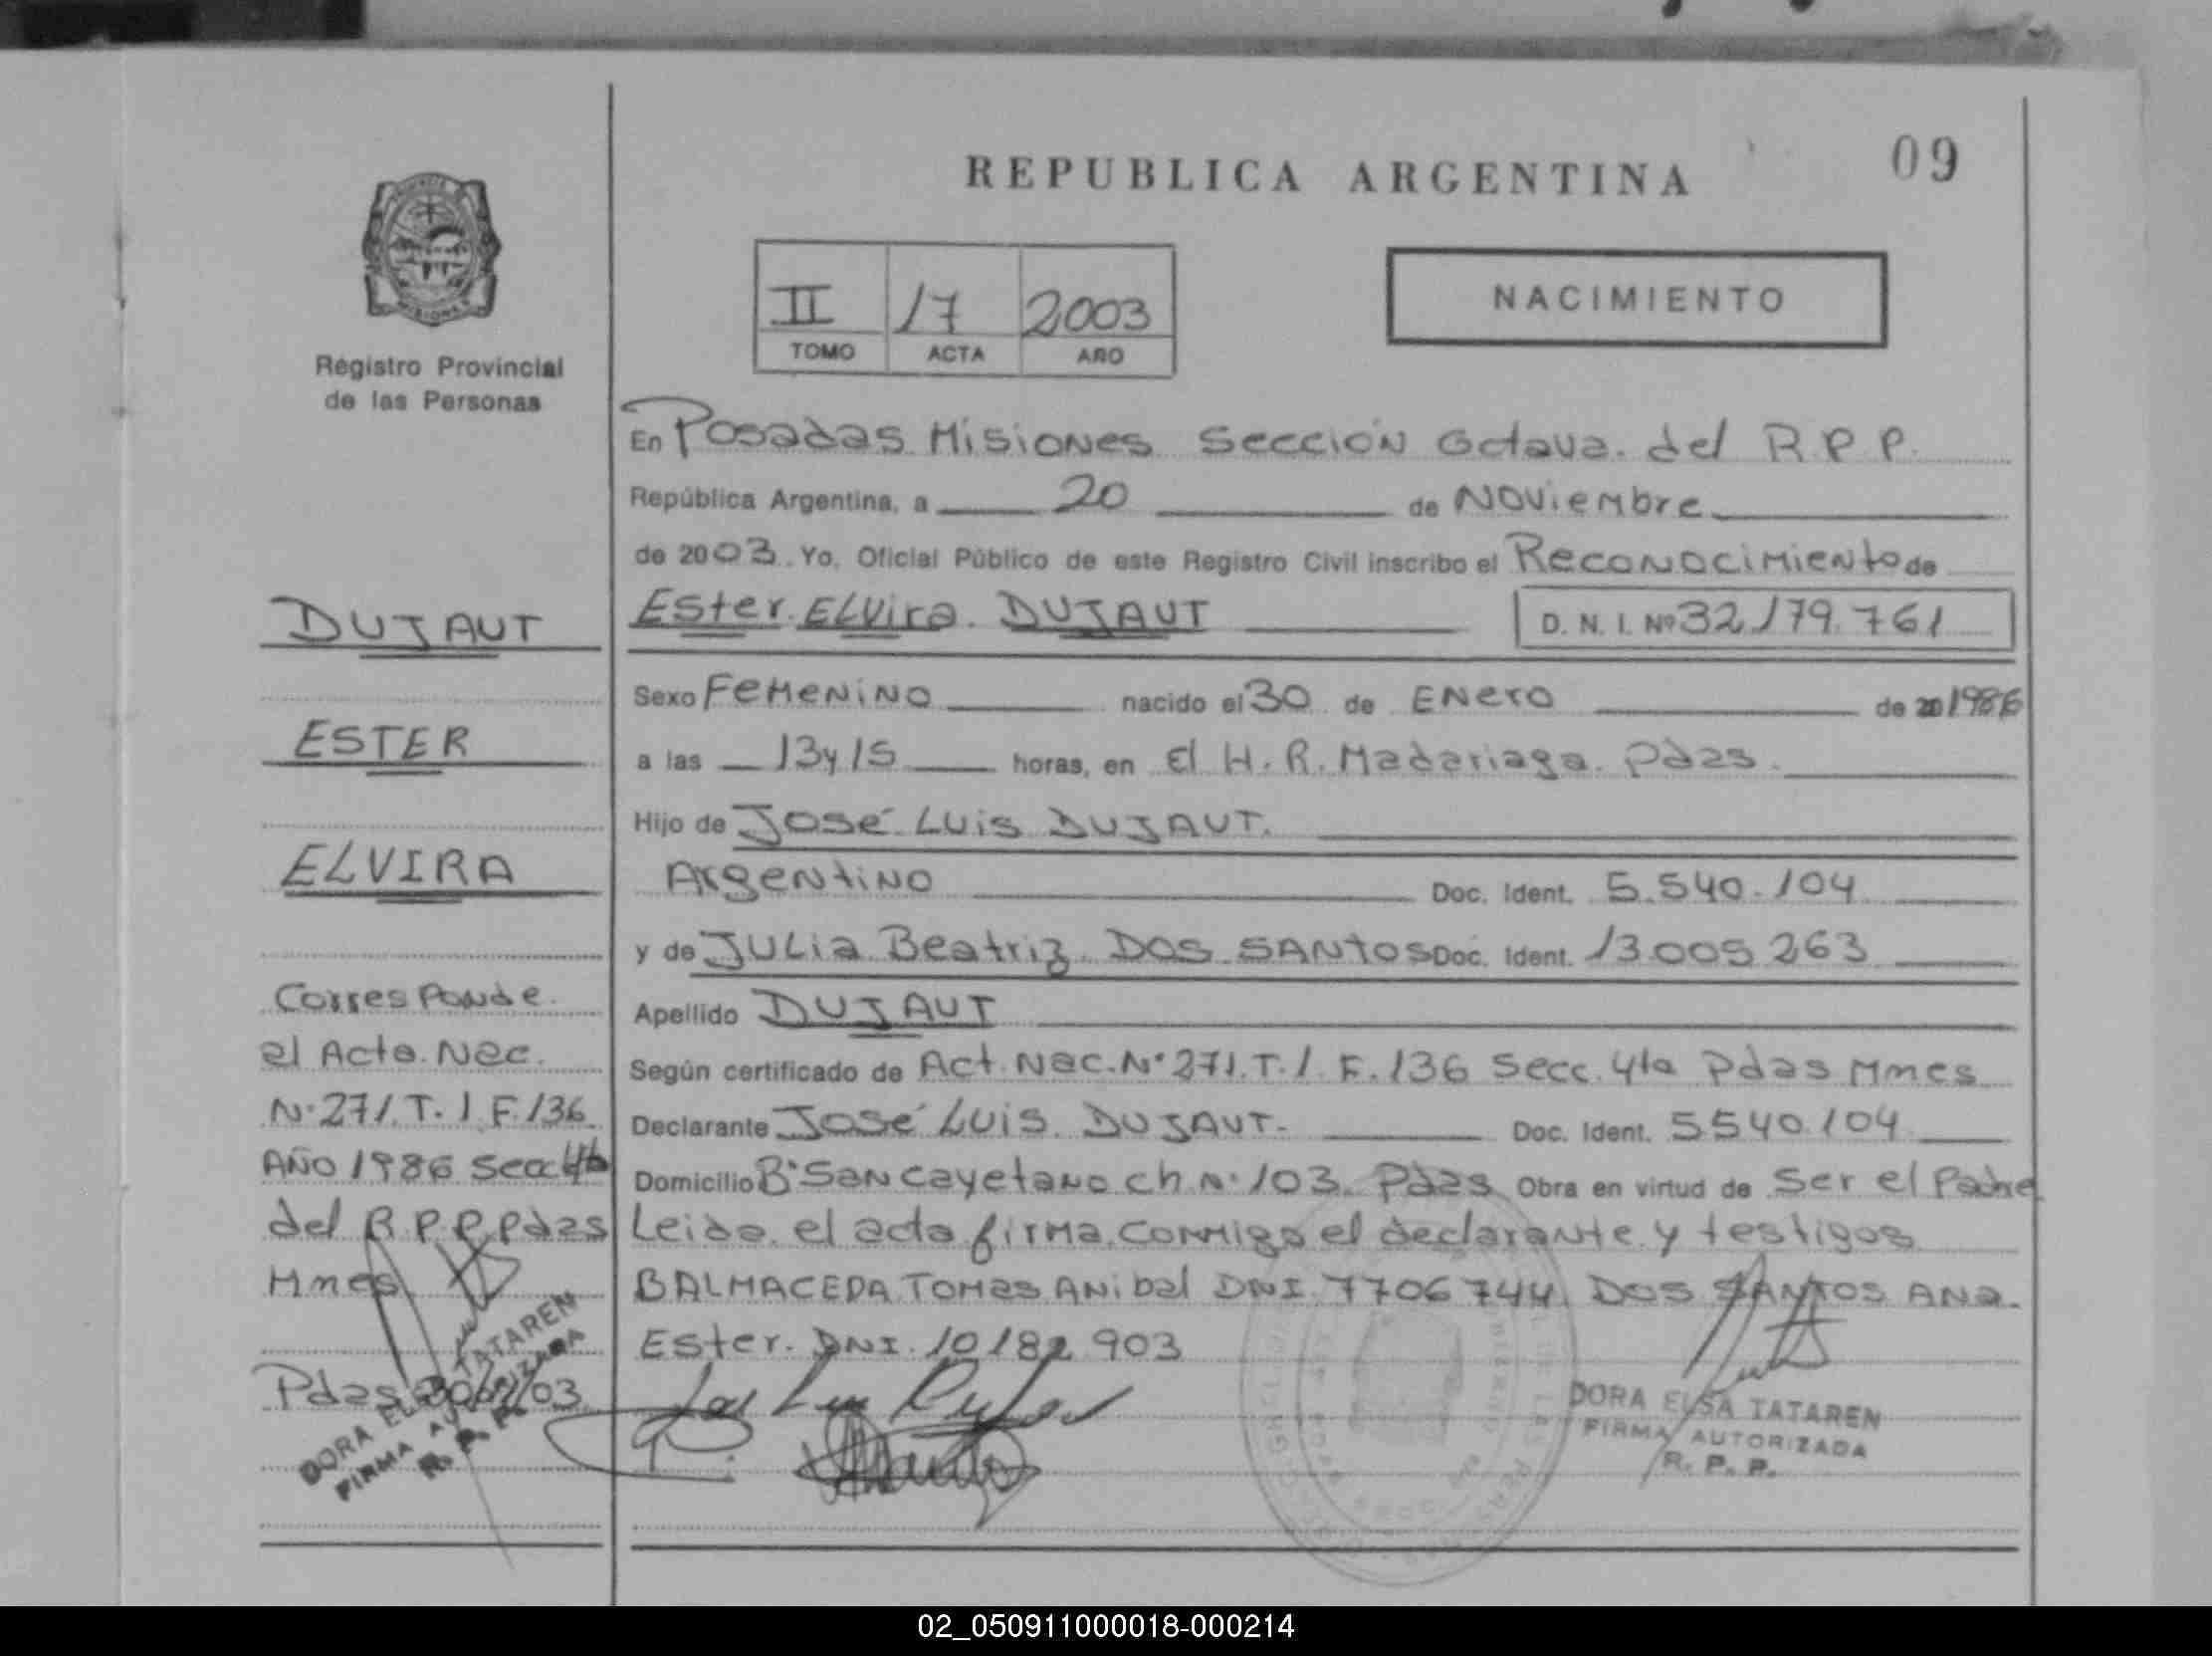 REPUBLICA ARGENTINA
09
II 17 2003
TOMO ACTA AÑO
NACIMIENTO
Registro Provincial
de las Personas
En Posadas Misiones Sección Octava del R.P.P.
República Argentina, a 20 de Noviembre
de 2003 Yo, Oficial Público de este Registro Civil inscribo el Reconocimiento de
Ester Elvira DUJAUT D. N. I. Nº 32.179.761
Sexo Femenino nacido el 30 de Enero de 20 1986
a las 13 y 15 horas, en El H. R. Madariaga. Pdas.
Hijo de José Luis DUJAUT.
Argentino Doc. Ident. 5.540.104
y de Julia Beatriz DOS SANTOS Doc. Ident. 13.005.263
Apellido DUJAUT
Según certificado de Act. Nac. Nº 271. T. 1 F. 136 Secc. 4ta Pdas Mnes
Declarante José Luis DUJAUT. Doc. Ident. 5540.104
Domicilio Bº San Cayetano ch Nº 103. Pdas Obra en virtud de Ser el Padre
Leida el acta firma conmigo el declarante y testigos
BALMACEDA Tomas Anibal DNI. 7706744. DOS SANTOS Ana.
Ester. DNI. 10182903
DORA ELSA TATAREN
FIRMA AUTORIZADA
R. P. P.
DUJAUT
ESTER
ELVIRA
Corresponde
al Acta Nac.
Nº 271. T. 1 F. 136
Año 1986 Secc 4ta
del R.P.P. Pdas
Mnes
Pdas /03
DORA ELSA TATAREN
FIRMA AUTORIZADA
R. P. P.
02_050911000018-000214